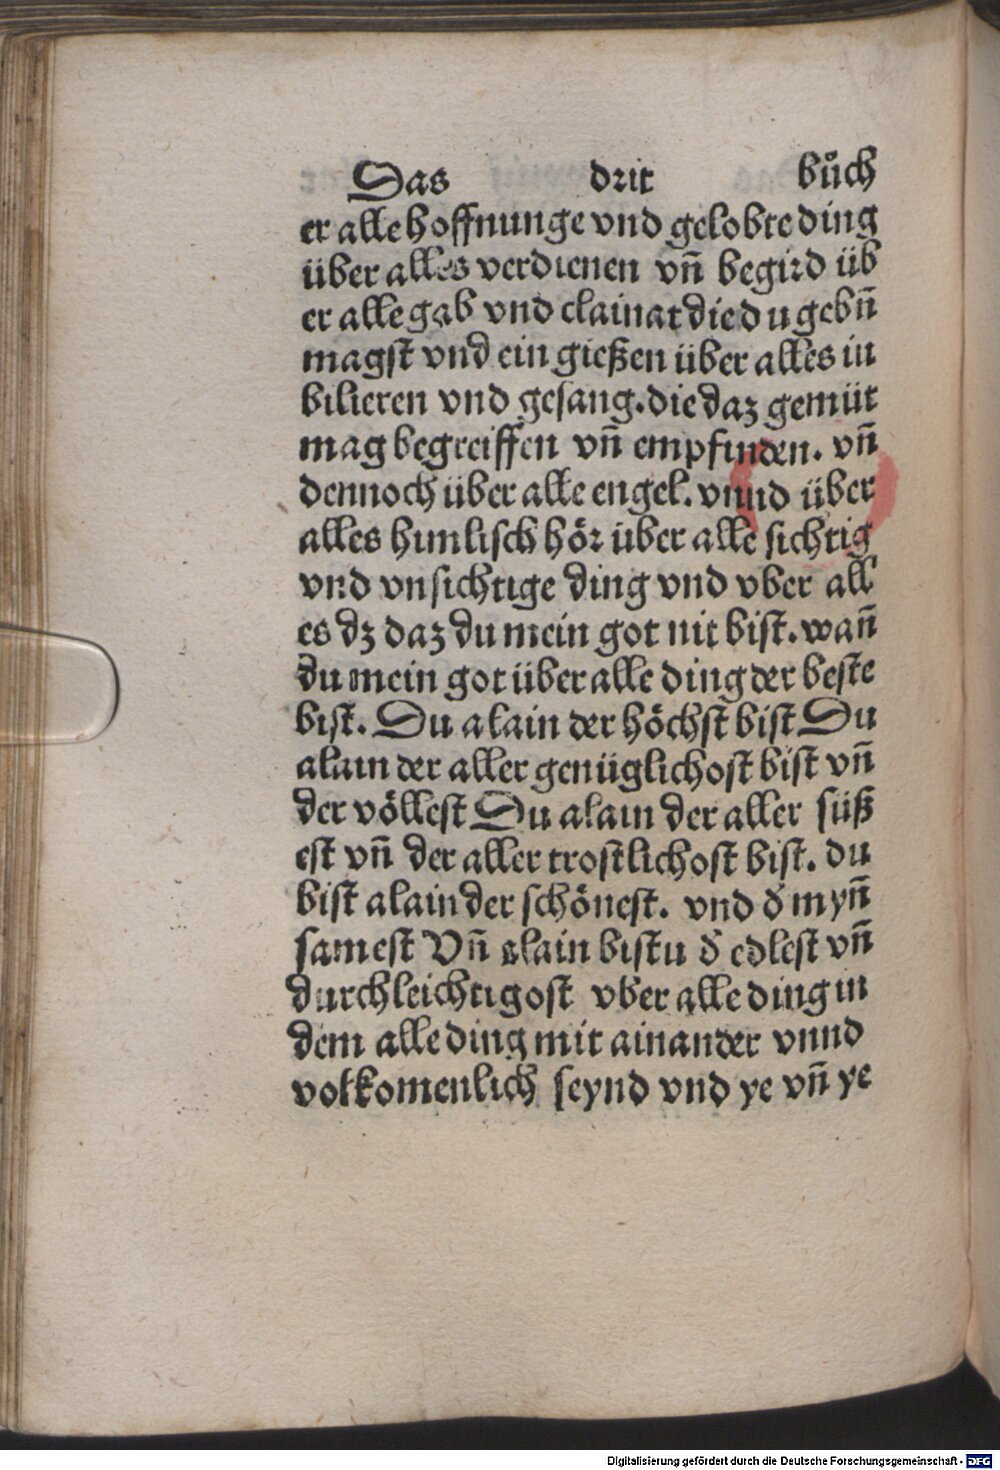 Das drit bůch
er alle hoffnunge vnd gelobte ding
über alles verdienen vñ begird üb
er alle gab vnd clainat die du gebñ
magst vnd ein gießen über alles iu
bilieren vnd gesang. die daz gemüt
mag begreiffen vñ empfinden. vñ
dennoch über alle engel. vnnd über
alles himlisch hör über alle sichtig
vnd vnsichtige ding vnd vber all
es dz daz du mein got nit bist. wañ
du mein got über alle ding der beste
bist. Du alain der höchst bist Du
alain der aller genüglichost bist vñ
der völlest Du alain der aller süß
est vñ der aller trostlichost bist. du
bist alain der schönest. vnd d̕ myñ
samest Vñ alain bistu d̕ edlest vñ
durchleichtigost vber alle ding in
dem alle ding mit ainander vnnd
volkomenlich seynd vnd ye vñ ye
Digitalisierung gefördert durch die Deutsche Forschungsgemeinschaft - DFG